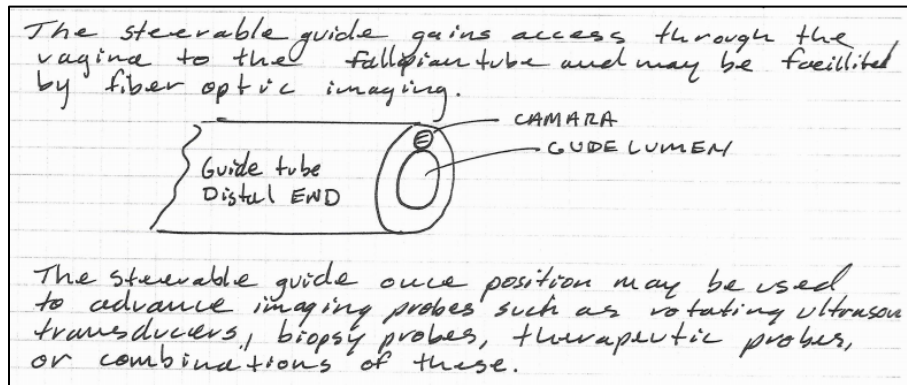 The steerable guide gains access through the
vagina to the fallopian tube and may be facillited
by fiber optic imaging.
CAMARA
GUDE LUMEN
Guide tube
Distal END
The steerable guide once position may be used
to advance imaging probes such as rotating ultrason
transducers, biopsy probes, therapeutic probes,
or combinations of these.